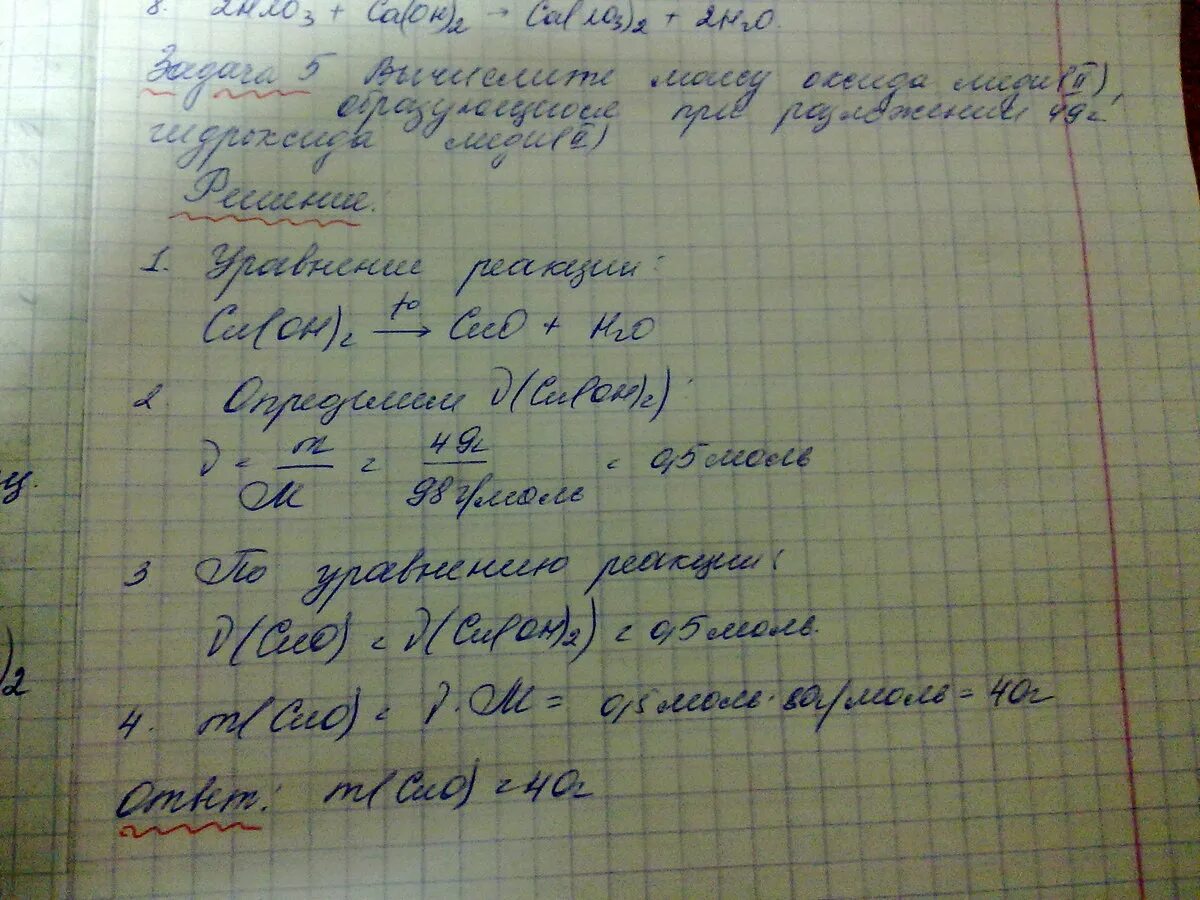 8. 2HNO3 + Ca(OH)2 → Ca(NO3)2 + 2H2O.
Задача 5 Вычислите массу оксида меди (II),
образующегося при разложении 49г
гидроксида меди (II)
Решение:
1. Уравнение реакции:
Cu(OH)2 t° → CuO + H2O
2 Определим ν(Cu(OH)2):
ν = m/M = 49г/98г/моль = 0,5 моль
3 По уравнению реакции:
ν(CuO) = ν(Cu(OH)2) = 0,5 моль.
4. m(CuO) = ν · M = 0,5 моль · 80г/моль = 40г
Ответ: m(CuO) = 40г
ц.
)2